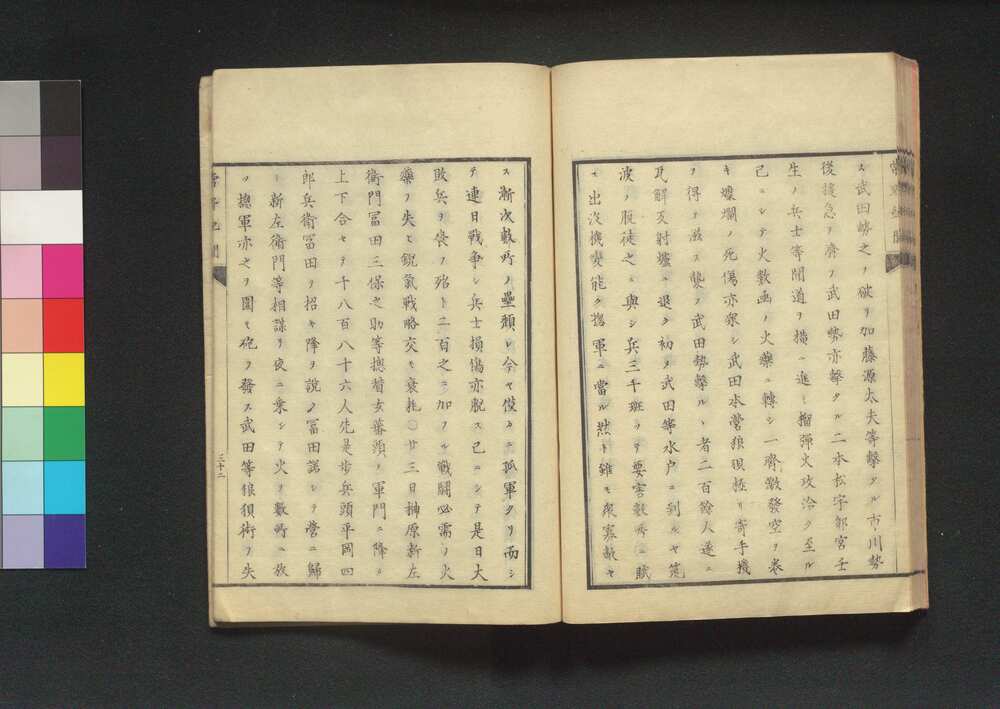 ス武田勢之ヲ破リ加藤源太夫等擊タル市川勢
後援急ヲ齊フ武田勢亦擊タル二本松宇都宮壬
生ノ兵士等間道ヲ橫ニ進ミ榴彈火攻洽ク至ル
己ニシテ火數函ノ火藥ニ轉シ一齊激發空ヲ卷
キ爛ノ死傷亦衆シ武田本營狼狽極リ寄手機
ヲ得テ益ス襲フ武田勢擊ル丶者二百餘人遂ニ
瓦解反射爐ニ退ク初メ武田等水户ニ到ルヤ筑
波ノ服徒之ニ與シ兵三千班ツテ要害數所ニ賦
シ出沒機變能ク摠軍ニ當ル然ト雖モ衆寡敵セ
ス漸次數所ノ壘頽レ今ヤ僅カニ孤軍タリ而シ
テ連日戰爭シ兵士損傷亦脫ス己ニシテ是日大
敗兵ヲ喪フ殆ト二百之ニ加フル戰鬪必需ノ火
藥ヲ失ヒ銳氣戰略交モ衰耗〇廿三日榊原新左
衛門冨田三保之助等摠督女蕃頭ノ軍門ニ降ル
上下合セテ千八百八十六人先是步兵頭平岡四
郎兵衛冨田ヲ招キ降ヲ說ク冨田諾シテ營ニ歸
リ新左衛門等相謀リ夜ニ乘シテ火ヲ數所ニ放
ツ摠軍亦之ヲ圍ミ砲ヲ發ス武田等狼狽術ヲ失
三十二